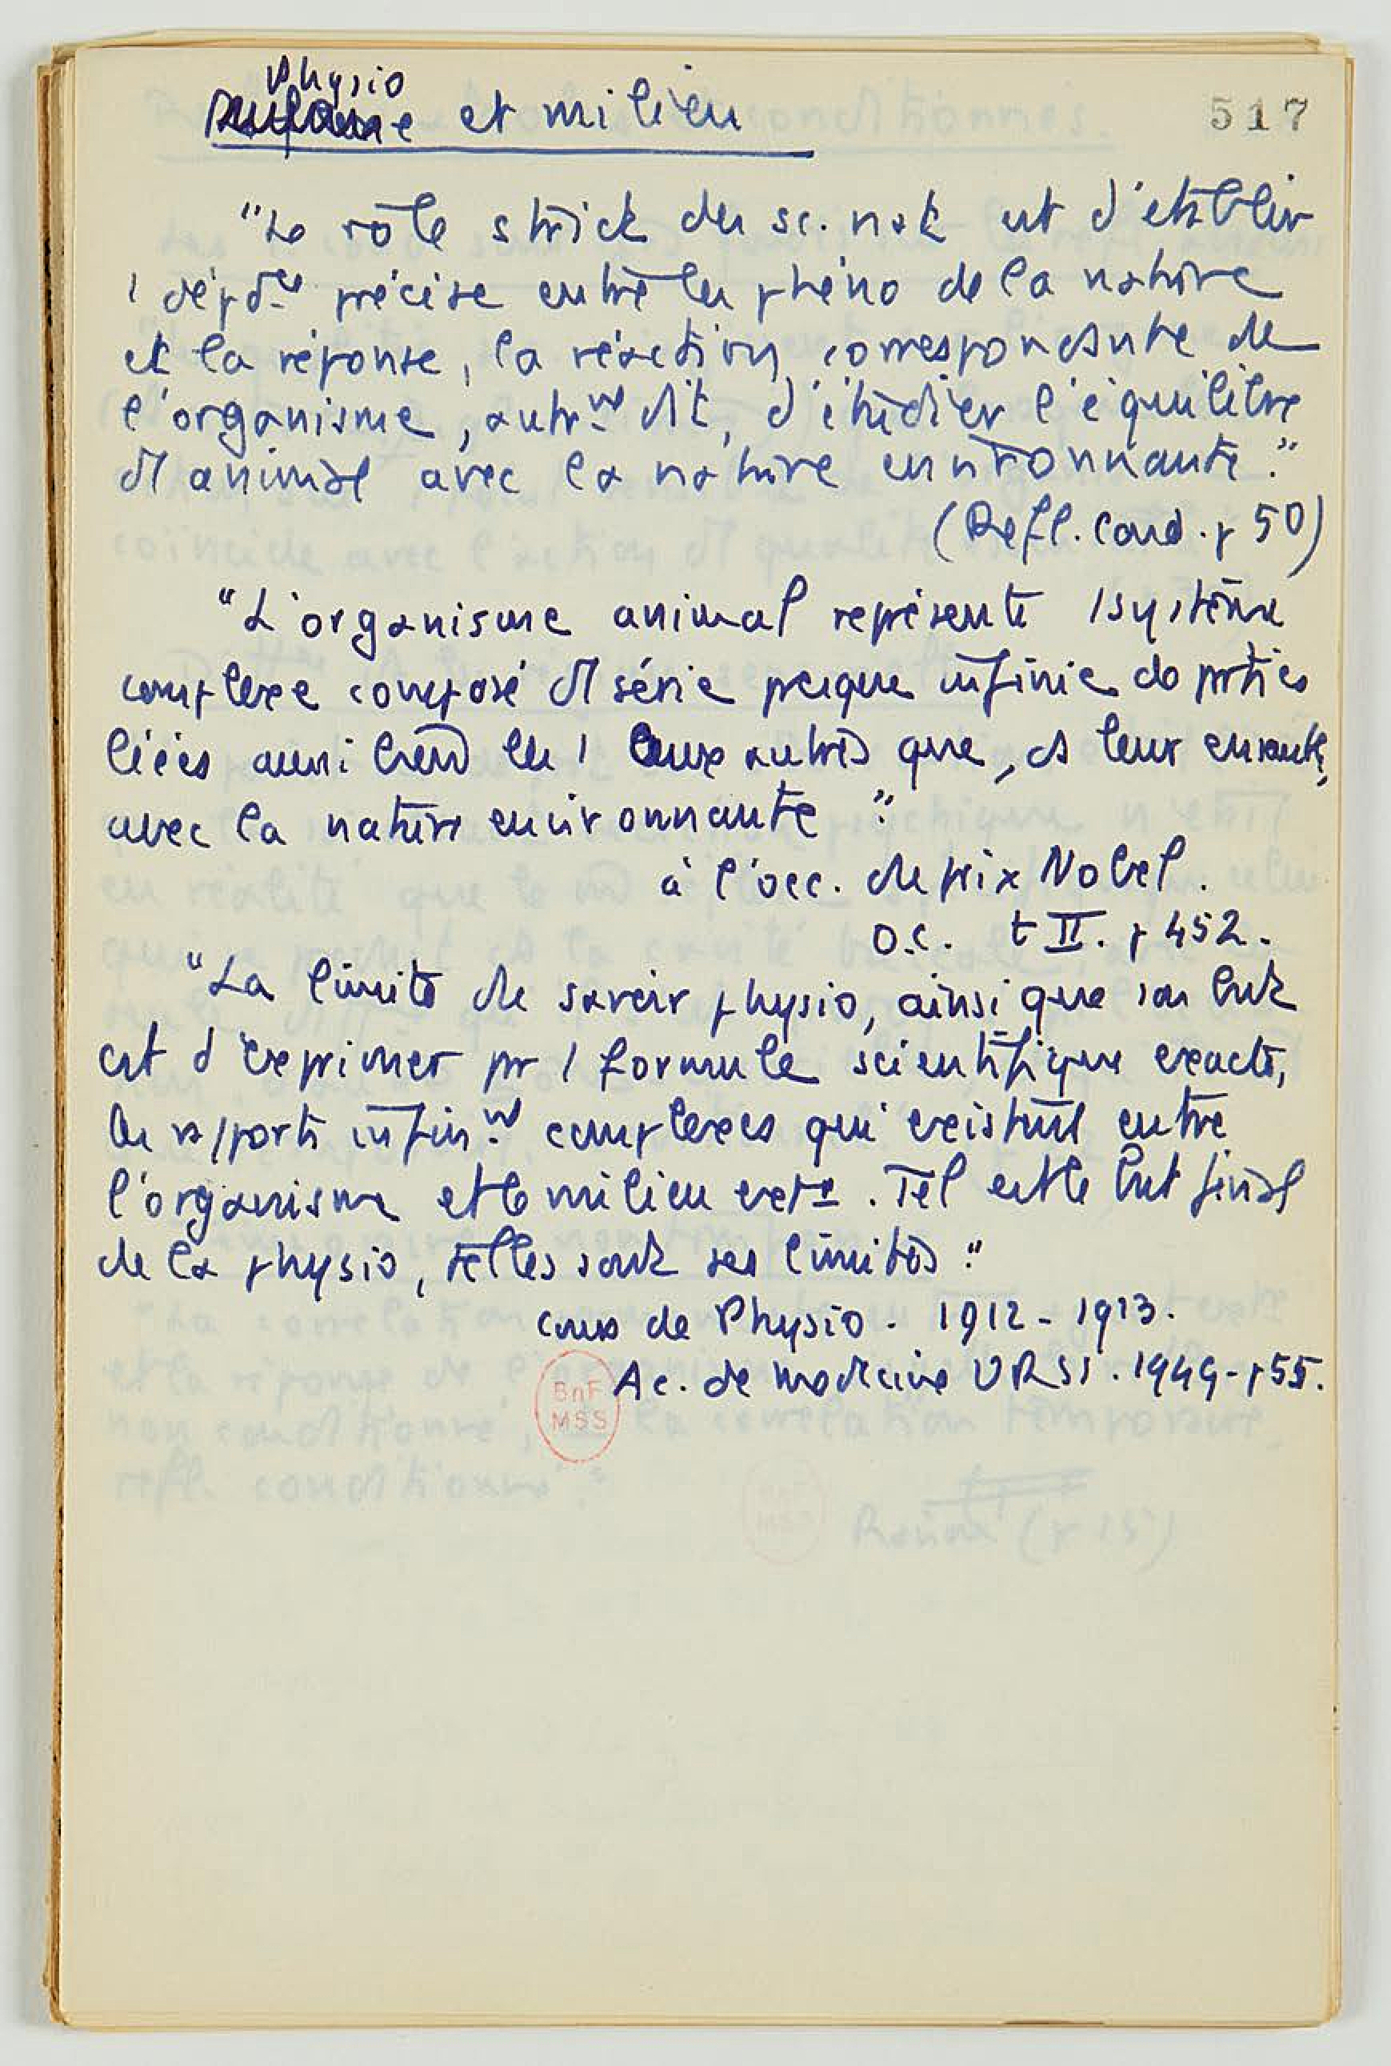 Physio
et milieu
517
"Le rôle strick des sc. nat est d'établir
1 dépdce précise entre les phéno de la nature
et la réponse, la réaction correspondante de
l'organisme, autrnt dit, d'étudier l'équilibre
dl animal avec la nature environnante."
(Refl. Cond. p 50)
"L'organisme animal représente 1 système
complexe composé d1 série presque infinie de prties
liées aussi bien les 1 aux autres que, ds leur ensemble,
avec la nature environnante."
à l'occ. du prix Nobel.
O.C. t II. p 452.
"La limite du savoir physio, ainsi que son but
est d'exprimer pr 1 formule scientifique exacte,
les rapports infinnt complexes qui existent entre
l'organisme et le milieu extr. Tel est le but final
de la physio, telles sont ses limites."
Cours de Physio. 1912-1913.
Ac. de médecine URSS. 1949-p55.
BnF
MSS